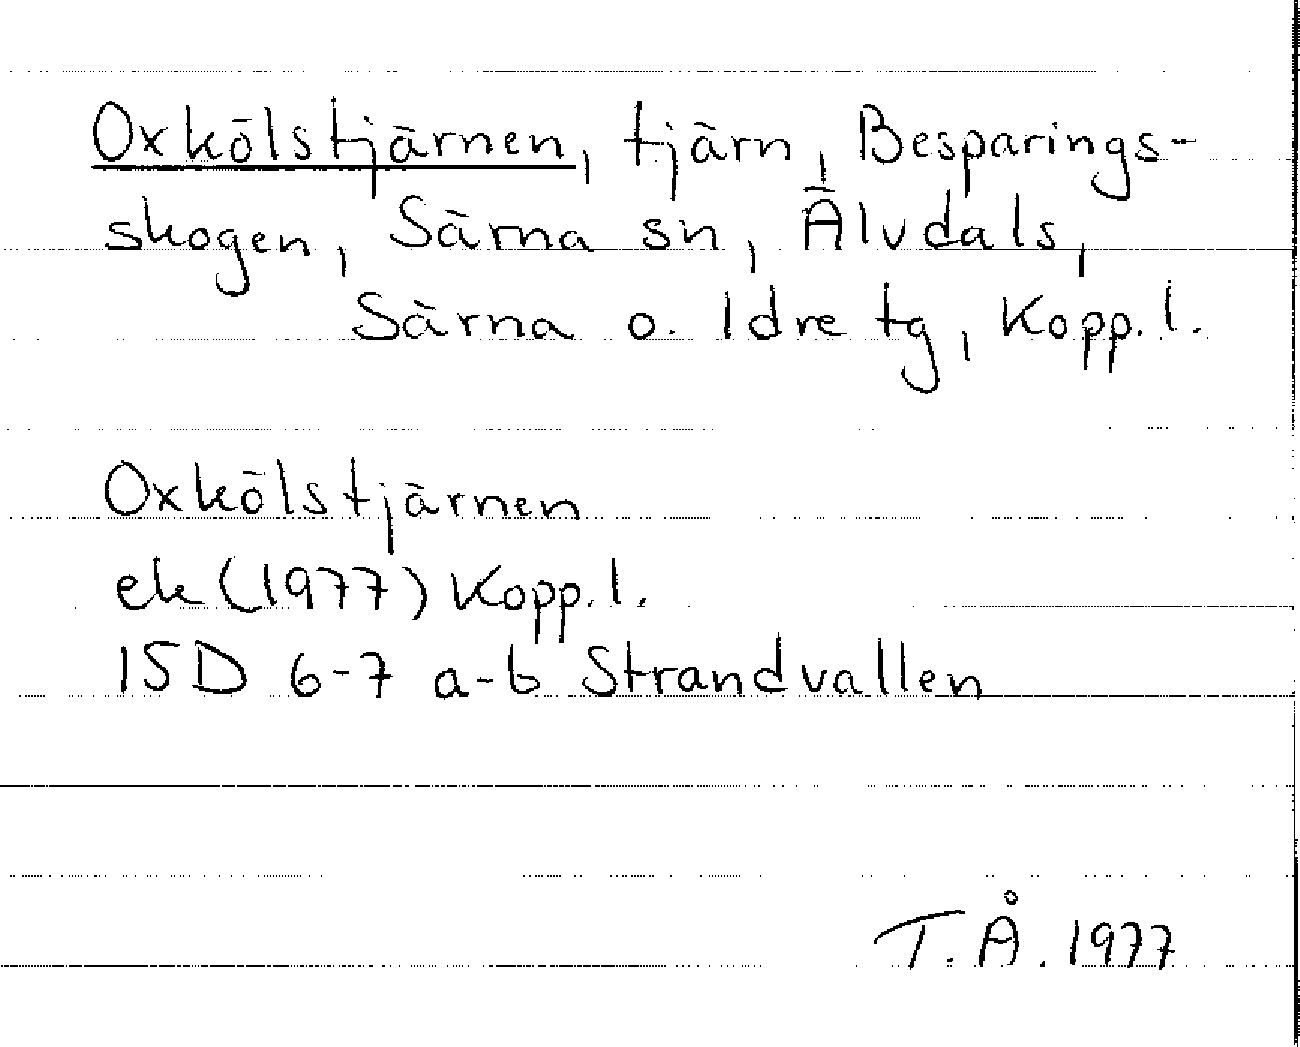 Oxkölstjärnen, tjärn, Besparings-
skogen, Särna sn, Älvdals,
Särna o. Idre tg, Kopp. l.
Oxkölstjärnen
ek (1977) Kopp. l.
15D 6-7 a-b Strandvallen
T. Å. 1977